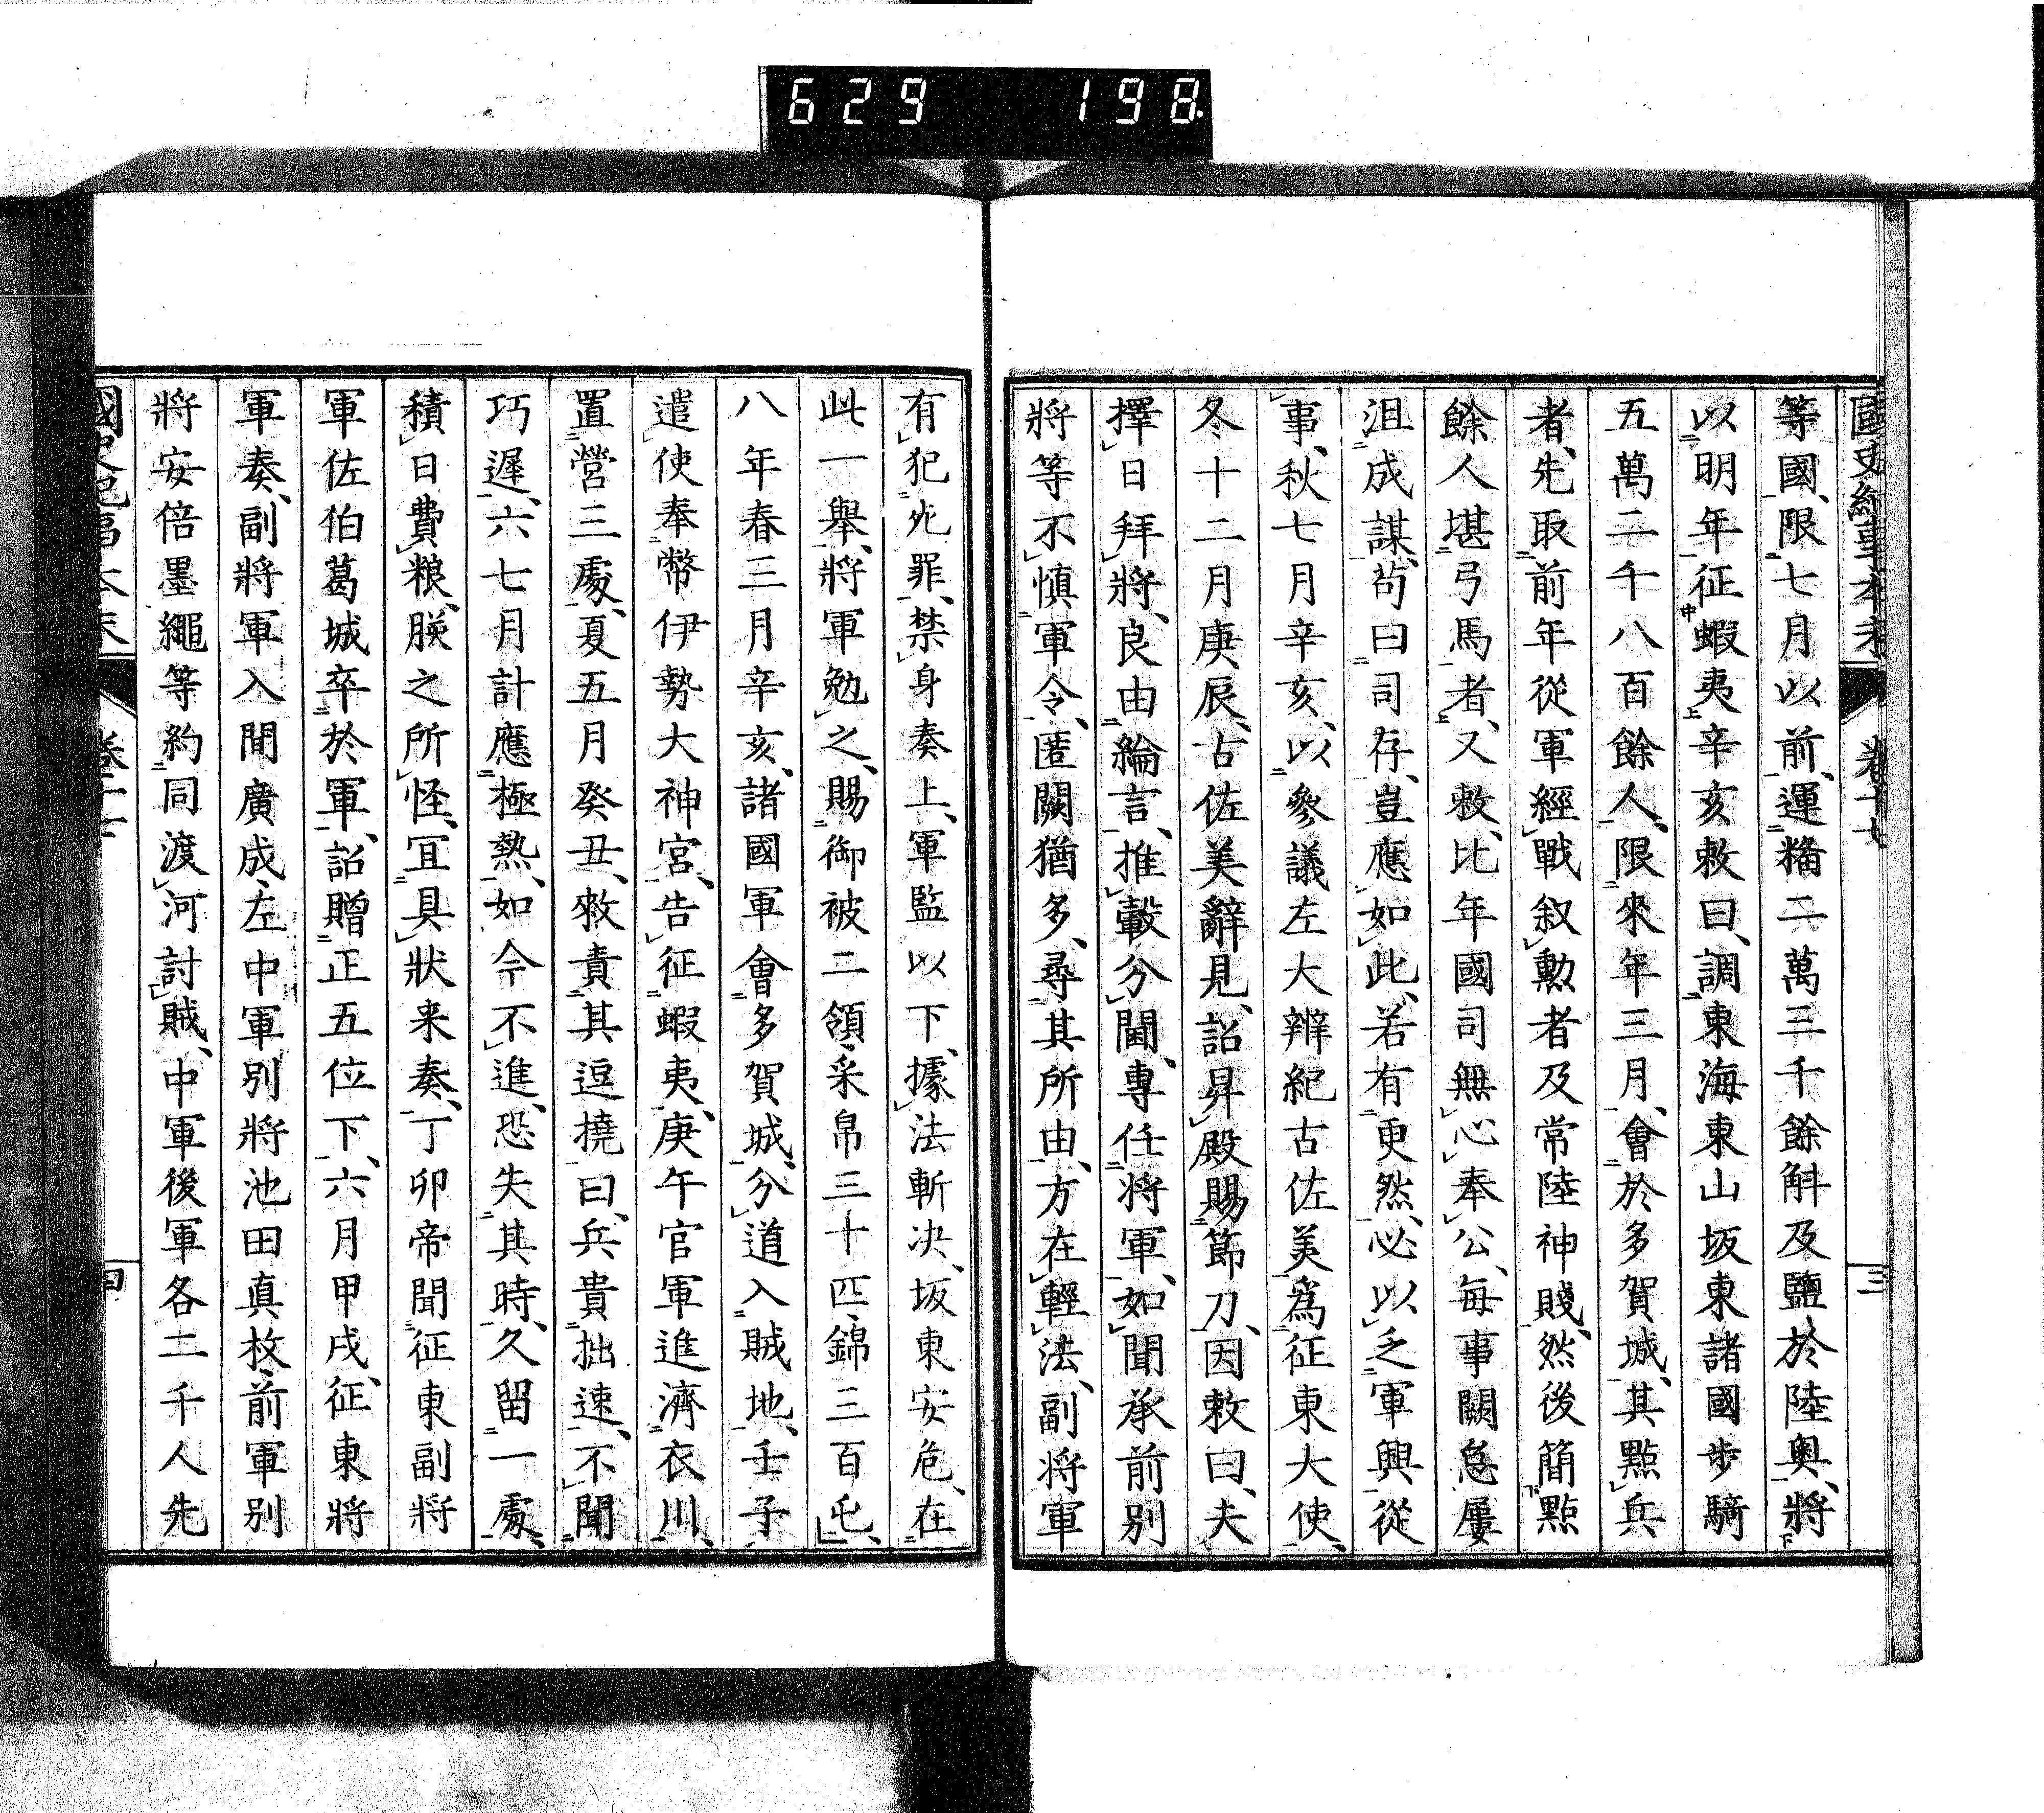 629 198
國史紀事本末 卷十七 三
等國、限七月以前、運糒二萬三千餘斛及鹽、於陸奥、將
以明年征蝦夷辛亥敕曰、調東海東山坂東諸國步騎
五萬二千八百餘人、限來年三月、會於多賀城、其點兵
者、先取前年從軍經戰叙勳者及常陸神賤、然後簡點
餘人堪弓馬者、又敕、比年國司無心奉公、每事闕怠屢
沮成謀、苟曰司存、豈應如此、若有更然、必以乏軍興從
事、秋七月辛亥、以參議左大辨紀古佐美爲征東大使、
冬十二月庚辰、古佐美辭見、詔昇殿賜節刀、因敕曰、夫
擇日拜將、良由綸言、推轂分閫、專任將軍、如聞承前別
將等不慎軍令、匿闕猶多、尋其所由、方在輕法、副將軍
有犯死罪、禁身奏上、軍監以下、據法斬决、坂東安危、在
此一舉、將軍勉之、賜御被二領、采帛三十匹、錦三百屯、
八年春三月辛亥、諸國軍會多賀城、分道入賊地、壬子
遣使奉幣伊勢大神宮、告征蝦夷、庚午官軍進濟衣川、
置營三處、夏五月癸丑、敕責其逗撓曰、兵貴拙速、不聞
巧遲、六七月計應極熱、如今不進、恐失其時、久留一處、
積日費粮、朕之所怪、冝具狀来奏、丁卯帝聞征東副將
軍佐伯葛城卒於軍、詔贈正五位下、六月甲戌、征東將
軍奏、副將軍入間廣成、左中軍別將池田真枚、前軍別
將安倍墨繩等約同渡河討賊、中軍後軍各二千人先
國史紀事本末 卷十七 四